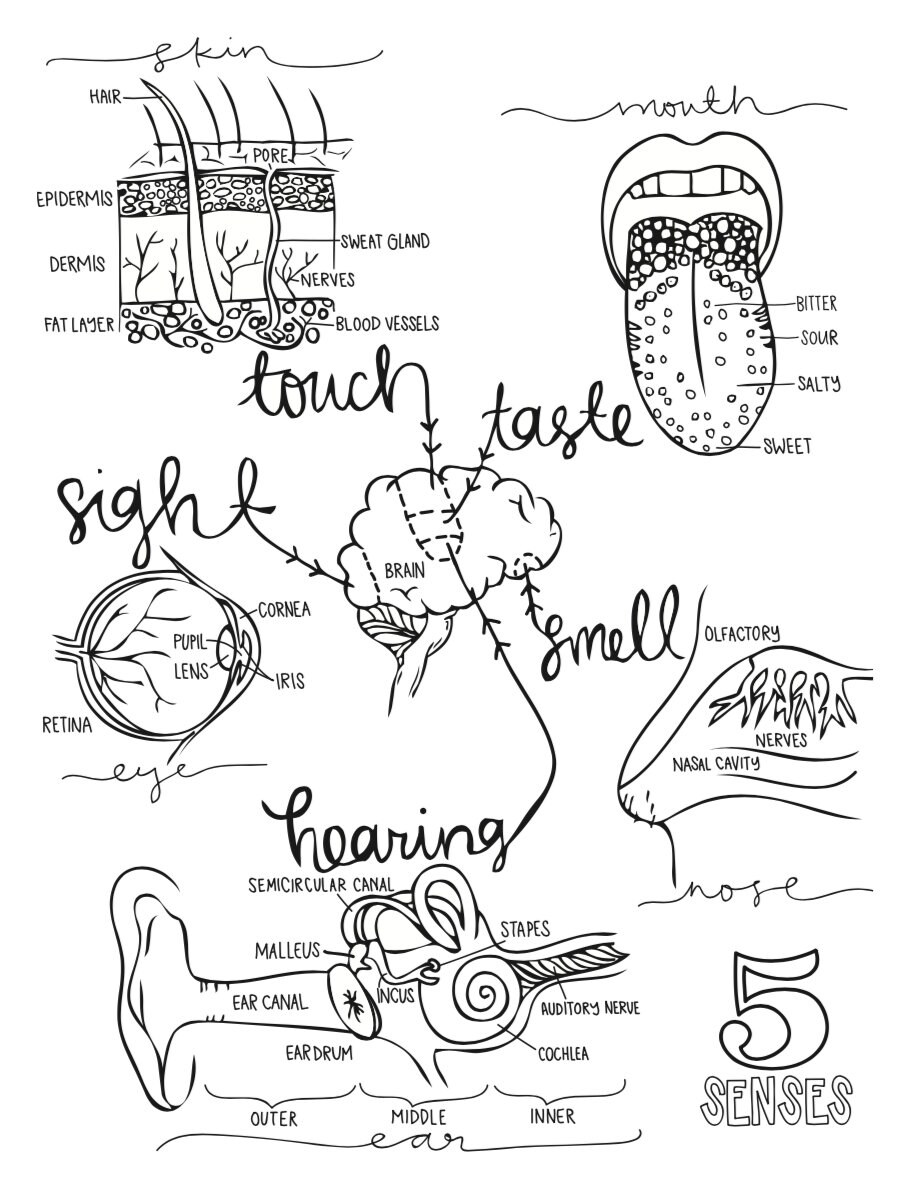 skin
HAIR
PORE
EPIDERMIS
DERMIS
SWEAT GLAND
NERVES
FAT LAYER
BLOOD VESSELS
touch
mouth
BITTER
SOUR
SALTY
SWEET
taste
sight
BRAIN
CORNEA
PUPIL
LENS
IRIS
RETINA
eye
smell
OLFACTORY
NERVES
NASAL CAVITY
nose
hearing
SEMICIRCULAR CANAL
STAPES
MALLEUS
INCUS
EAR CANAL
AUDITORY NERVE
EARDRUM
COCHLEA
OUTER
MIDDLE
INNER
ear
5
SENSES